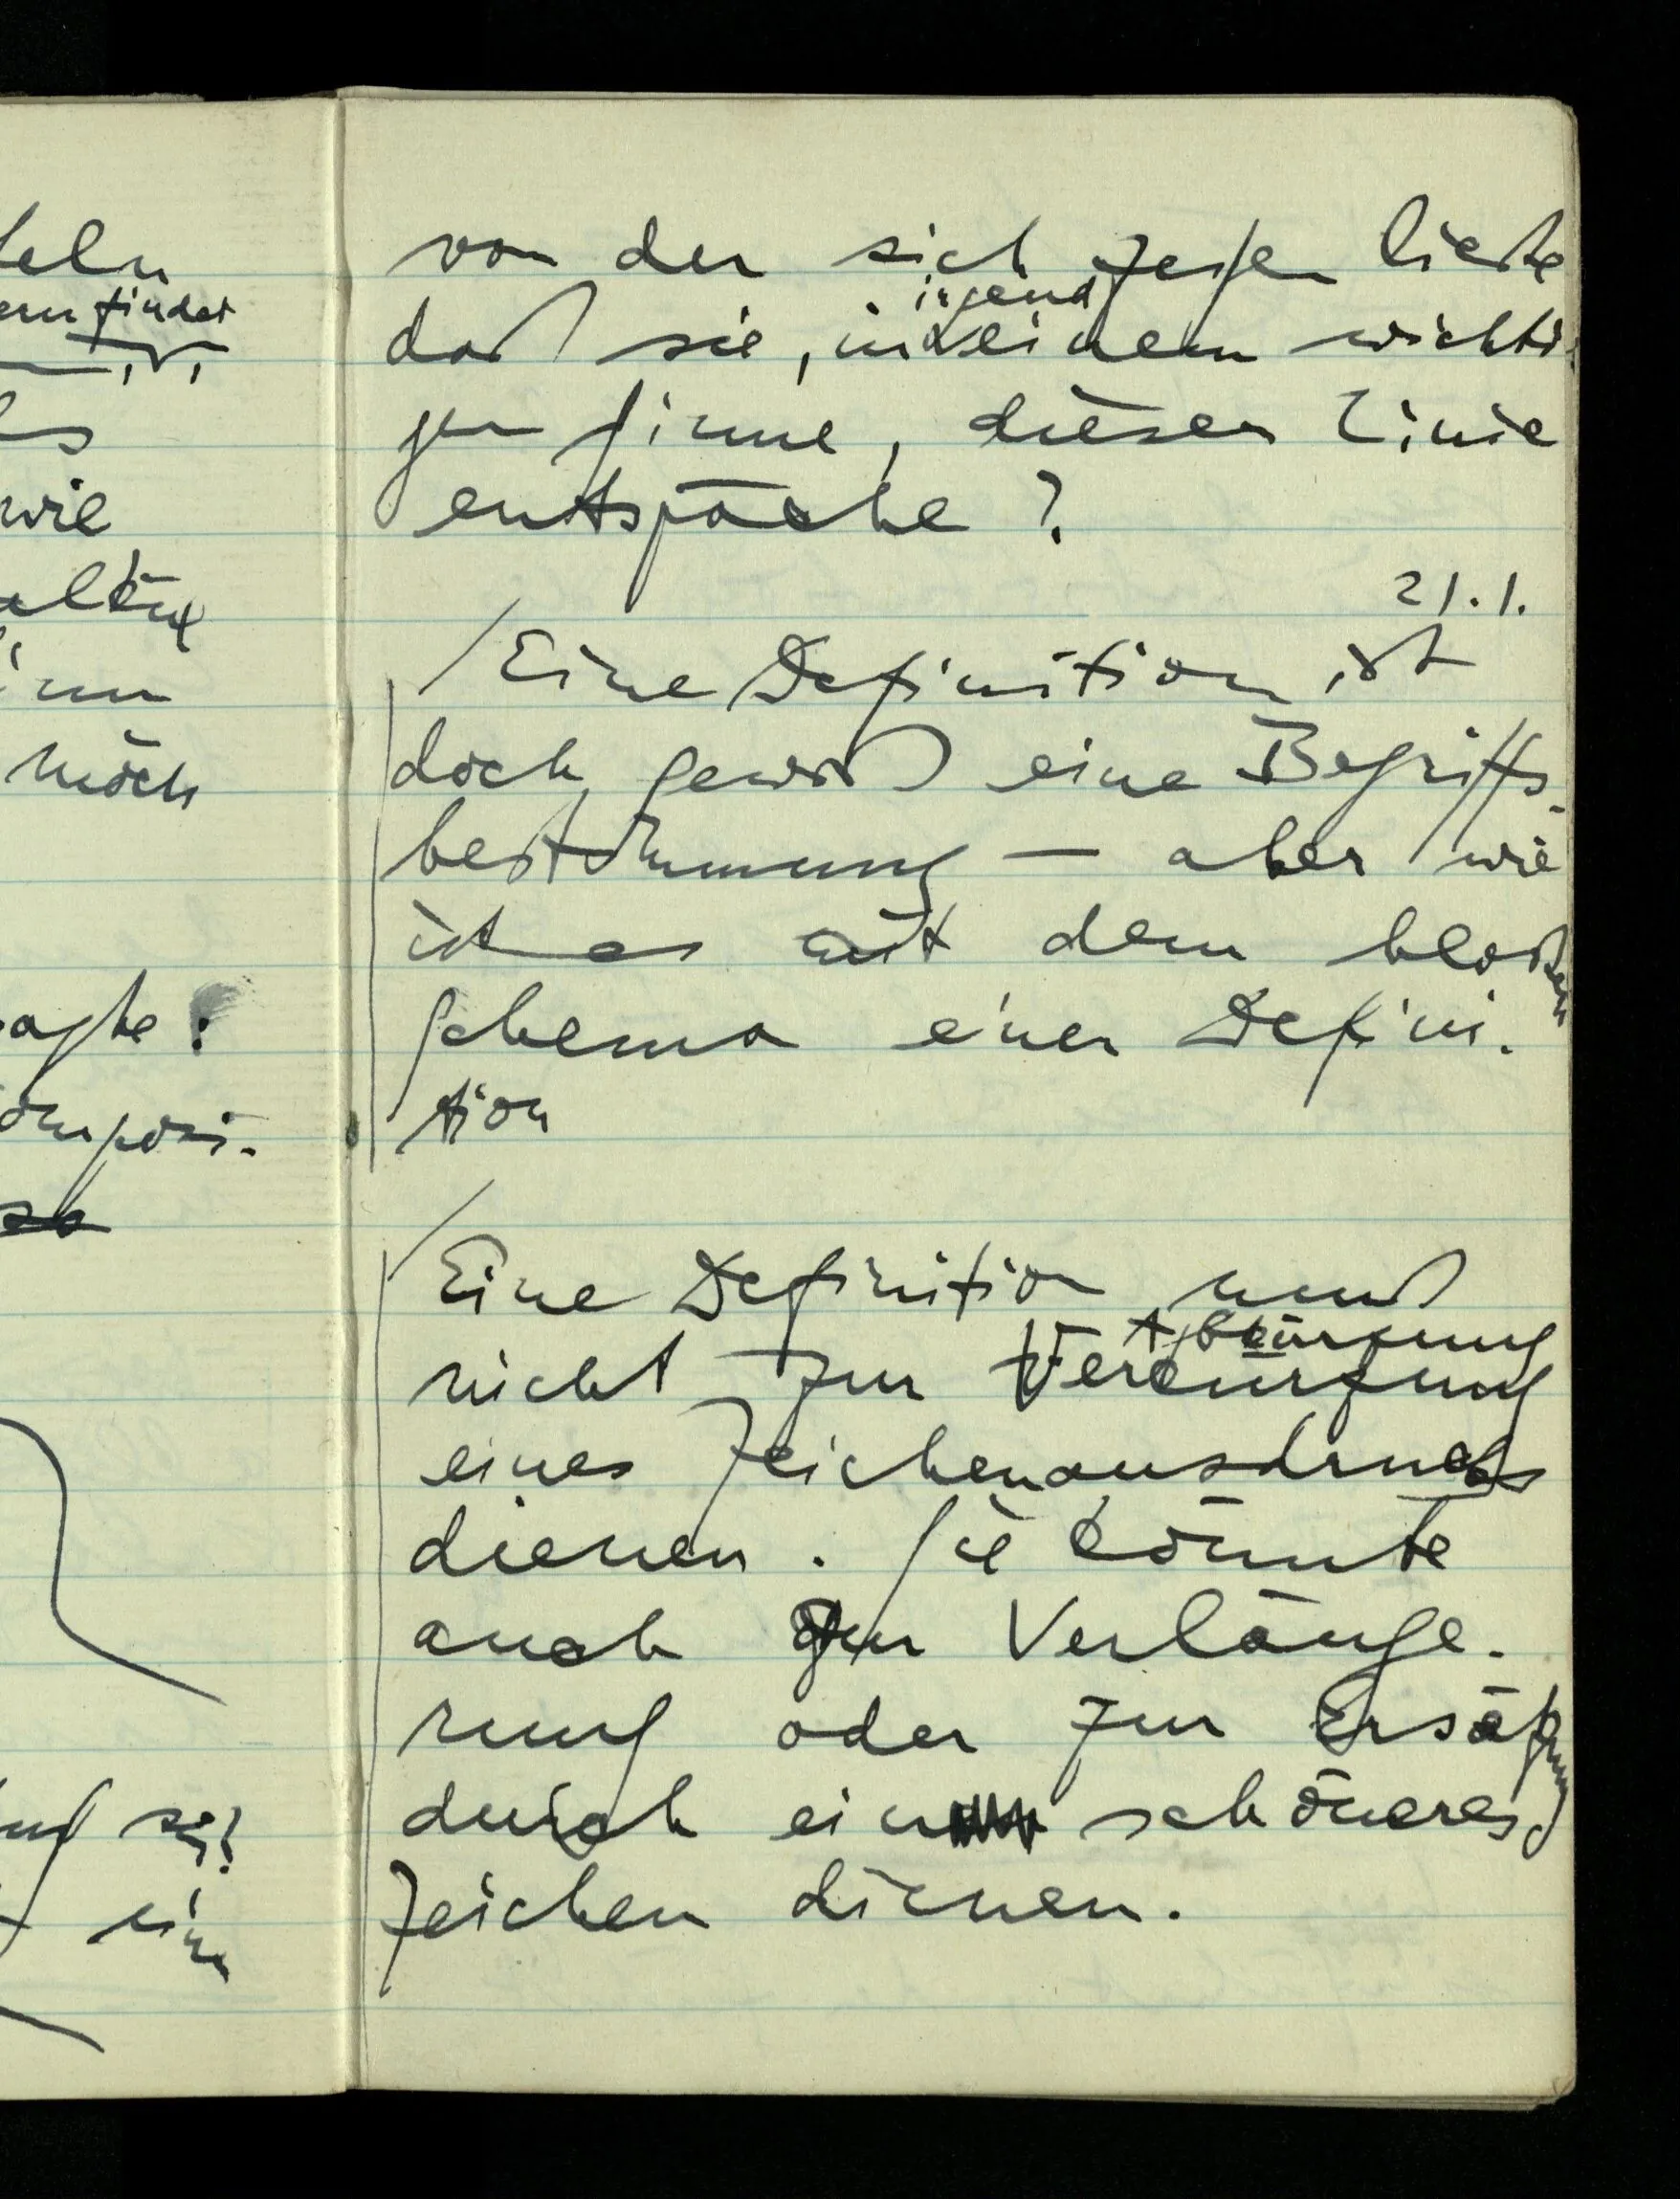 teln
findet
wie
möch
agte :
omposi-
so
sei?
ein
von der sich zeigen ließe
irgend
daß sie, in einem wichti-
gen Sinne, dieser Linie
entspräche ?
21.1.
/ Eine Definition ist
doch gewiß eine Begriffs-
bestimmung — aber wie
ist es mit dem bloßen
Schema einer Defini-
tion
/ Eine Definition muß
Abkürzung
nicht zur Verkürzung
eines Zeichenausdrucks
dienen. Sie könnte
auch zur Verlänge-
rung oder zur Ersätzung
durch ein schöneres
Zeichen dienen.